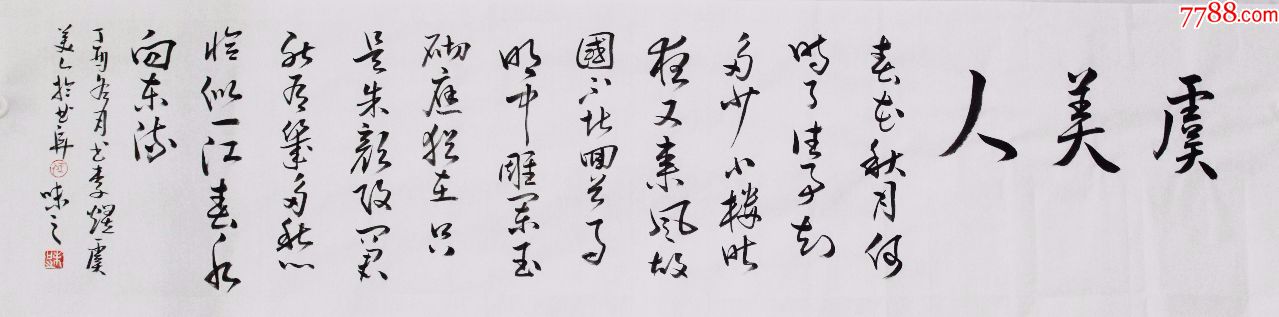 虞美人
春花秋月何
时了往事知
多少小楼昨
夜又东风故
國不堪回首月
明中雕阑玉
砌應犹在只
是朱颜改问君
能有幾多愁
恰似一江春水
向东流
丁酉冬月书李煜虞
美人於 味之
7788.com